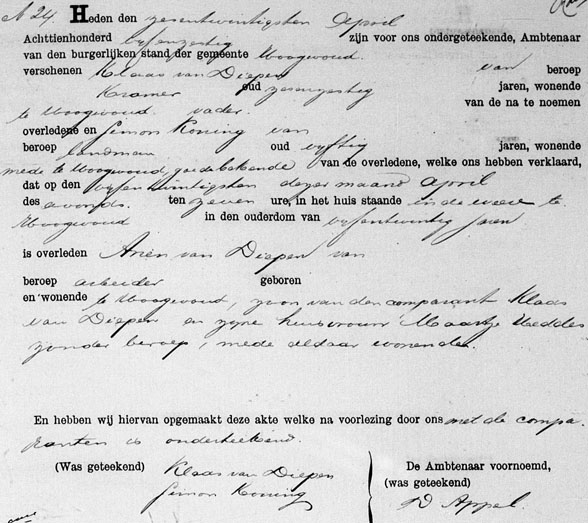 N 24. Heden den zesentwintigsten April
Achttienhonderd vijfenzestig zijn voor ons ondergeteekende, Ambtenaar
van den burgerlijken stand der gemeente Hoogwoud.
verschenen Klaas van Diepen van beroep
Kramer oud zesenzestig jaren, wonende
te Hoogwoud. vader. van de na te noemen
overledene en Simon Koning van
beroep landman oud vijftig jaren, wonende
mede te Hoogwoud, goede bekende van de overledene, welke ons hebben verklaard,
dat op den vijfentwintigsten dezer maand April
des avonds. ten zeven ure, in het huis staande in de weere te
Hoogwoud in den ouderdom van vijfentwintig jaren
is overleden Arien van Diepen van
beroep arbeider geboren
en wonende te Hoogwoud, zoon van den comparant Klaas
van Diepen en zijne huisvrouw Maartje Heddes
zonder beroep, mede aldaar wonende.
En hebben wij hiervan opgemaakt deze akte welke na voorlezing door ons met de compa.
ranten is onderteekend.
(Was geteekend) Klaas van Diepen De Ambtenaar voornoemd,
Simon Koning (was geteekend)
D Appel.